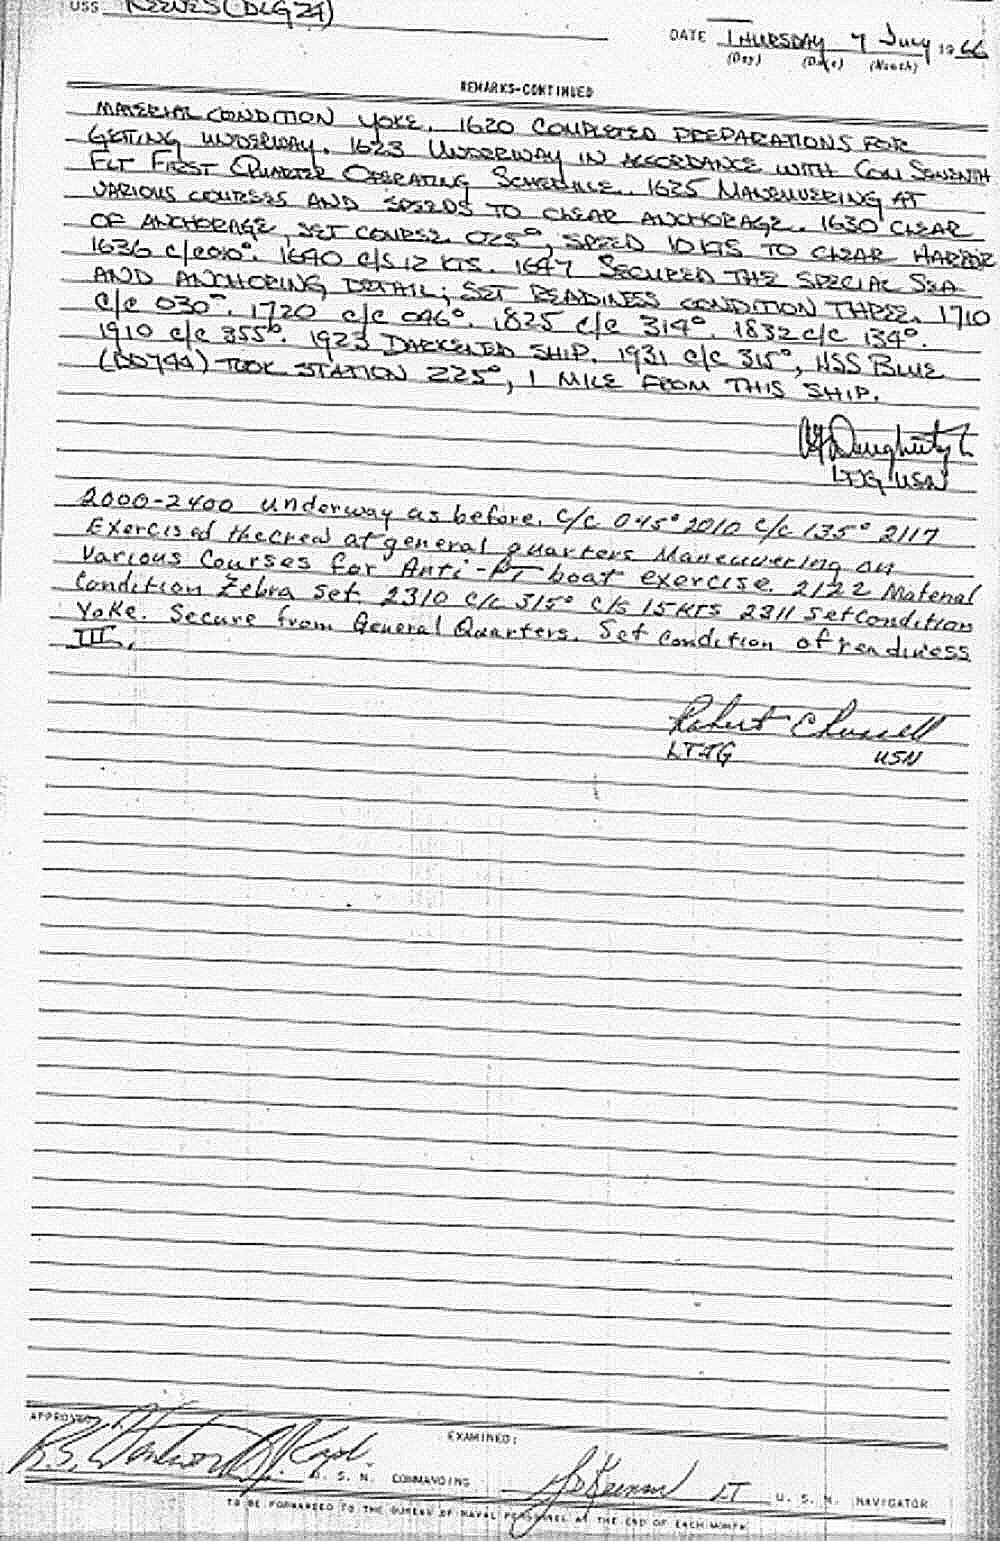 USS REEVES (DLG 24)
DATE THURSDAY 7 July 1966
(Day) (Date) (Month)
REMARKS-CONTINUED
MATERIAL CONDITION YOKE. 1620 COMPLETED PREPARATIONS FOR
GETTING UNDERWAY. 1623 UNDERWAY IN ACCORDANCE WITH COM SEVENTH
FLT FIRST QUARTER OPERATING SCHEDULE. 1625 MANEUVERING AT
VARIOUS COURSES AND SPEEDS TO CLEAR ANCHORAGE. 1630 CLEAR
OF ANCHORAGE, SET COURSE 025°, SPEED 10 KTS TO CLEAR HARBOR
1636 C/C 010°. 1640 C/S 12 KTS. 1647 SECURED THE SPECIAL SEA
AND ANCHORING DETAIL; SET READINESS CONDITION THREE. 1710
C/C 030°. 1720 C/C 046°. 1825 C/C 314°. 1832 C/C 134°.
1910 C/C 355°. 1923 DARKENED SHIP. 1931 C/C 315°, USS BLUE
(DD744) TOOK STATION 225°, 1 MILE FROM THIS SHIP.
Daugherty
LTJG USN
2000-2400 underway as before. C/C 045° 2010 C/C 135° 2117
Exercised the crew at general quarters Maneuvering on
Various Courses for Anti-PT boat exercise. 2122 Material
Condition Zebra Set. 2310 C/C 315° C/S 15 KTS 2311 Set Condition
Yoke. Secure from General Quarters. Set condition of readiness
III.
Robert C Russell
LTJG USN
APPROVED:
EXAMINED:
U. S. N. COMMANDING
LT U. S. N. NAVIGATOR
TO BE FORWARDED TO THE BUREAU OF NAVAL PERSONNEL AT THE END OF EACH MONTH